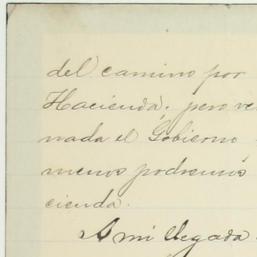 del camino por
Hacienda. pero ve
nada el Gobierno
menos podremos
cienda.
A mi llegada